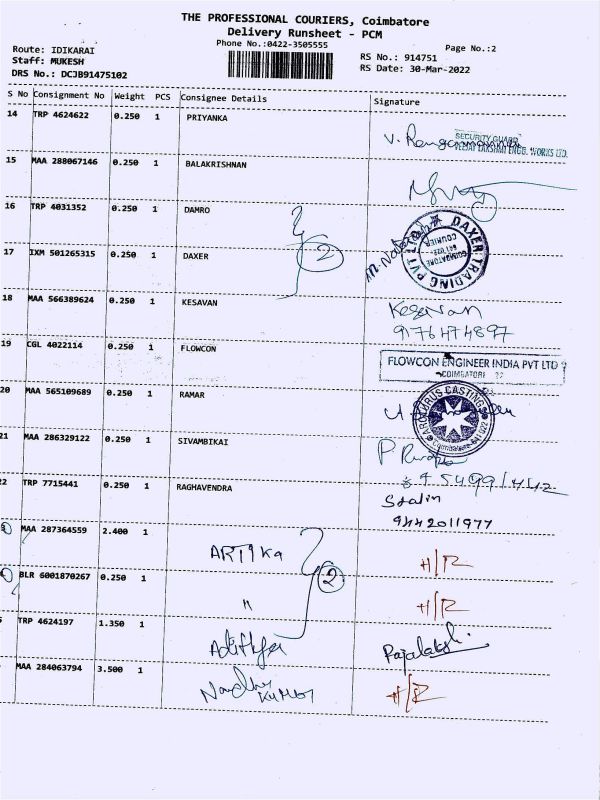 THE PROFESSIONAL COURIERS, Coimbatore
Delivery Runsheet - PCM
Phone No.:0422-3505555
Page No.:2
Route: IDIKARAI
Staff: MUKESH
DRS No.: DCJB91475102
RS No.: 914751
RS Date: 30-Mar-2022
S No Consignment No Weight PCS Consignee Details Signature
14 TRP 4624622 0.250 1 PRIYANKA
SECURITY GUARD
15 MAA 288067146 0.250 1 BALAKRISHNAN
16 TRP 4031352 0.250 1 DAMRO
2
DAXER TRADING PVT LTD
COURIER
COIMBATORE
17 IXM 501265315 0.250 1 DAXER
18 MAA 566389624 0.250 1 KESAVAN Kesavan
9176474897
19 CGL 4022114 0.250 1 FLOWCON FLOWCON ENGINEER INDIA PVT LTD
COIMBATORE
20 MAA 565109689 0.250 1 RAMAR
CASTINGS
21 MAA 286329122 0.250 1 SIVAMBIKAI
22 TRP 7715441 0.250 1 RAGHAVENDRA Stalin
9442011977
MAA 287364559 2.400 1 ARTIKA H/R
2
BLR 6001870267 0.250 1 " H/R
TRP 4624197 1.350 1
MAA 284063794 3.500 1 H/R